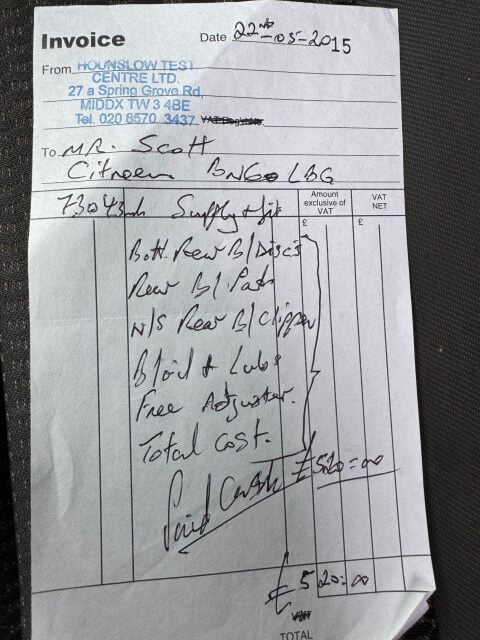 Invoice
Date 22ND-05-2015
From HOUNSLOW TEST
CENTRE LTD.
27 a Spring Grove Rd
MIDDX TW3 4BE
Tel. 020 8570 3437
To MR. Scott
Citroen BN60 LBG
73043 Supply + fit
Amount
exclusive of
VAT
VAT
NET
£ £
Both Rear B/Discs
Rear B/ Pads
N/S Rear B/Clipper
B/oil + Lubs
Free Adjuster.
Total cost.
Paid Cash £520=00
£520=00
TOTAL